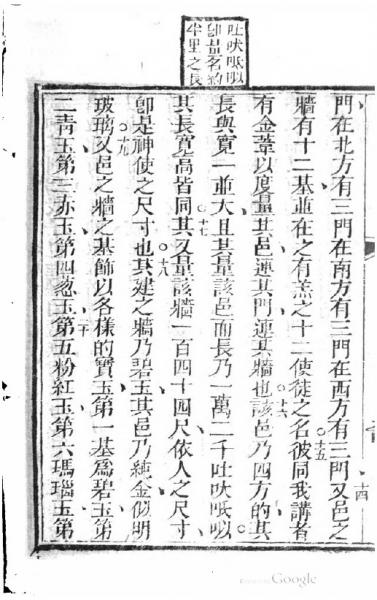 吐吠呧㕽
卽量名約
半里之長
十四
門在北方有三門在南方有三門在西方有三門又邑之
十五
牆有十二基並在之有羔之十二使徒之名彼同我講者
十六
有金葦以度量其邑連其門連其牆也該邑乃四方的其
長與寬一並大且其量該邑而長乃一萬二千吐吠呧㕽
十七
其長寬高皆同其又量該牆一百四十四尺依人之尺寸
十八
卽是神使之尺寸也其建之牆乃碧玉其邑乃純金似明
十九
玻璃又邑之牆之基飾以各樣的寶玉第一基爲碧玉第
二十
二青玉第三赤玉第四葱玉第五粉紅玉第六瑪瑙玉第
Google